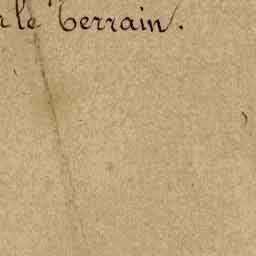 le Terrain.